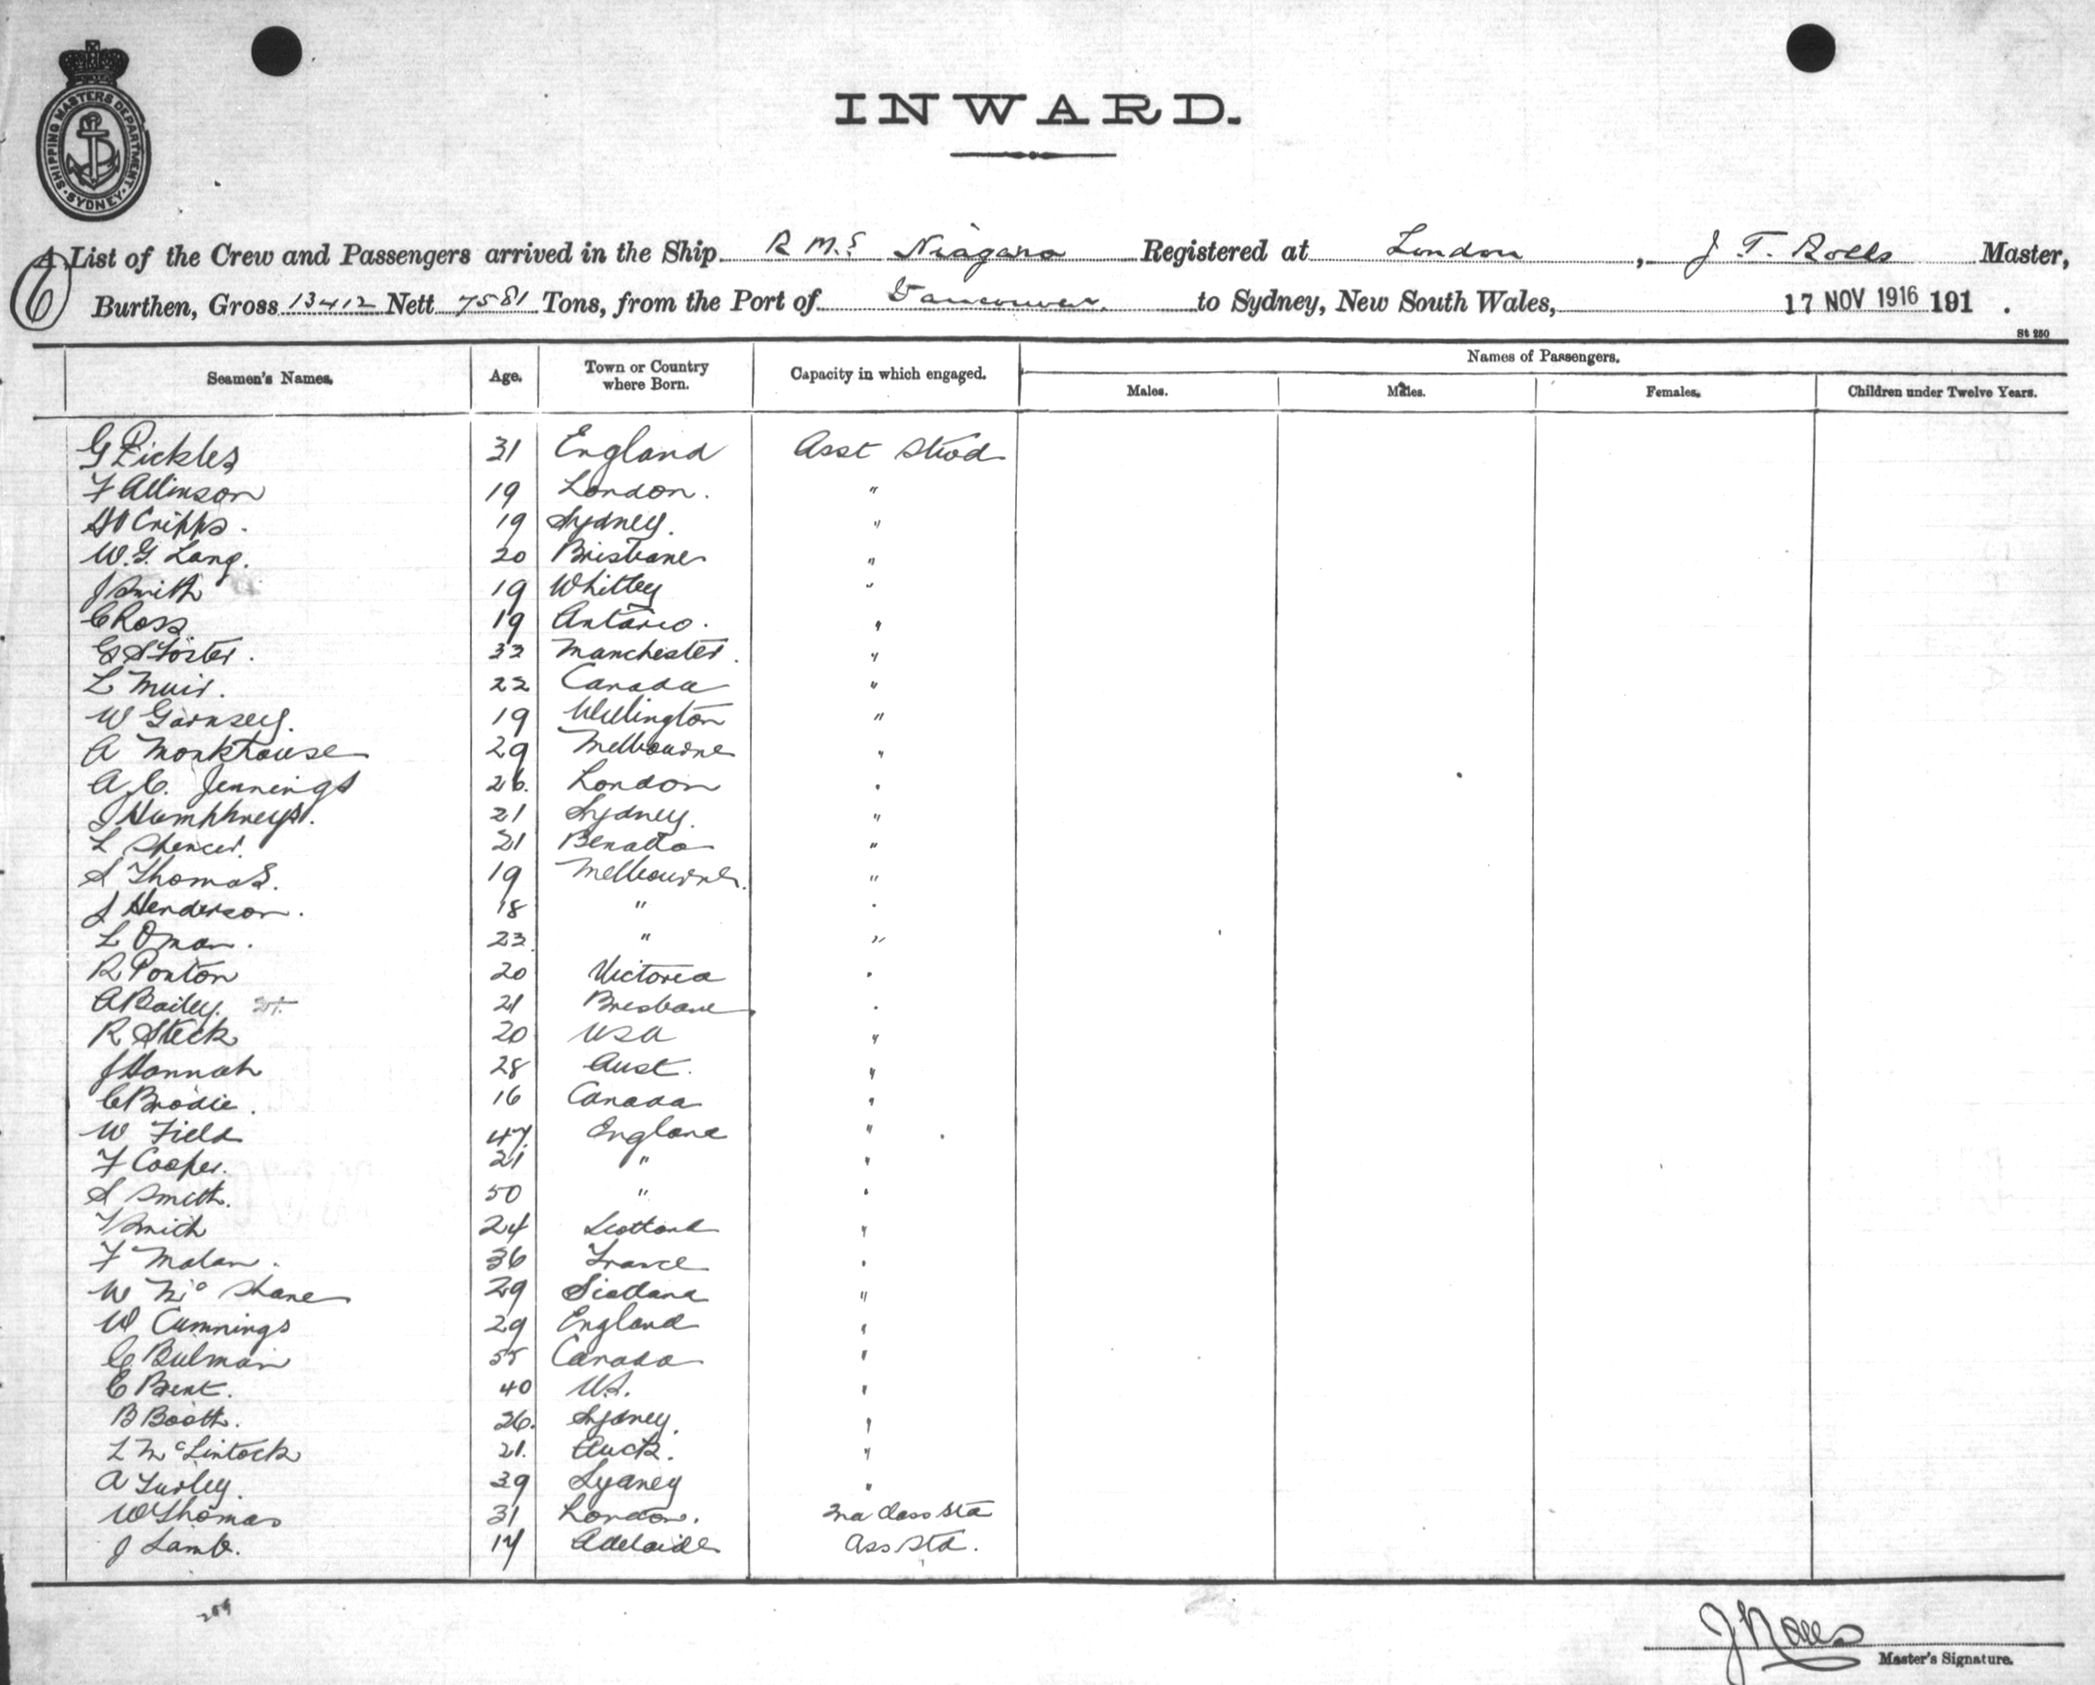 SHIPPING MASTERS DEPARTMENT SYDNEY
INWARD.
A List of the Crew and Passengers arrived in the Ship R.M.S Niagara Registered at London, J T. Rolls Master,
Burthen, Gross 13412 Nett 7581 Tons, from the Port of Vancouver. to Sydney, New South Wales, 17 NOV 1916 191 .
St 250
Seamen's Names. Age. Town or Country where Born. Capacity in which engaged. Names of Passengers.
Males. Males. Females. Children under Twelve Years.
G Pickles 31 England Asst Stwd
F Allinson 19 London. "
Cripps. 19 Sydney. "
W.G. Lang. 20 Brisbane "
J Smith 19 Whitley "
C Ross 19 Antario. "
G S Foster. 33 Manchester. "
L Muir. 22 Canada "
W Garnsey. 19 Wellington "
A Monkhouse 29 Melbourne "
A.C. Jennings 26. London "
J Humphreys. 21 Sydney. "
L Spencer. 21 Benalla "
S Thomas. 19 Melbourne. "
J Henderson. 18 " "
L Oman. 23 " "
R Ponton 20 Victoria "
A Bailey. 21 Brisbane "
R Steck 20 USA "
J Hannah 28 Aust. "
C Brodie. 16 Canada "
W Field 47. England "
F Cooper. 21 " "
S Smith. 50 " "
Smith 24 Scotland "
F Malan. 36 France "
W Mc Shane 29 Scotland "
W Cummings 29 England "
C Bulman 55 Canada "
E Brent. 40 U.S. "
B Booth. 26. Sydney. "
L McLintock 21. Auck. "
A Turley. 39 Sydney "
W Thomas 31 London. 2nd Class Std
J Lamb. 17 Adelaide Ass Std.
J Rolls
Master's Signature.